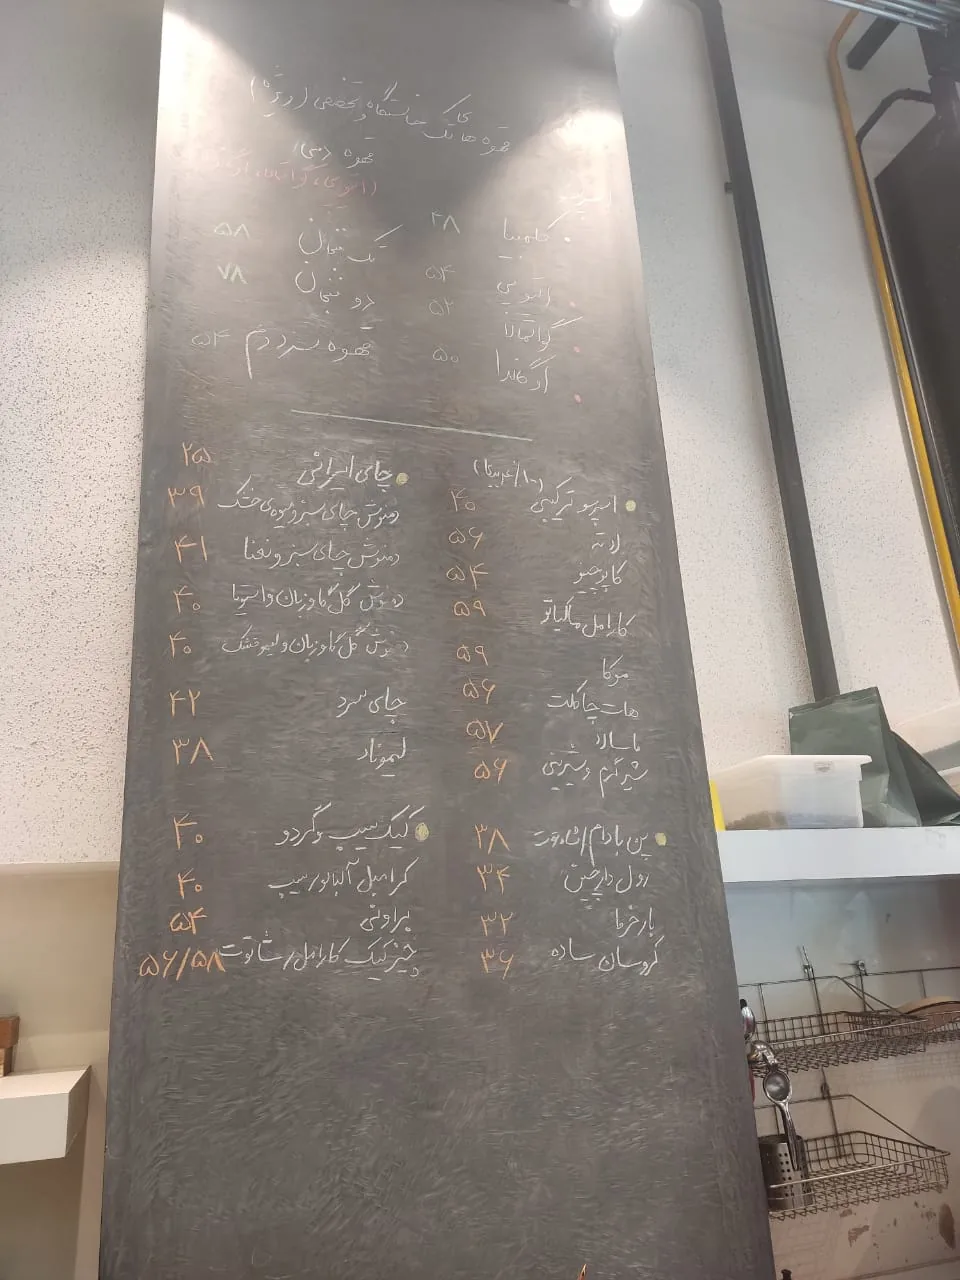 قهوه ها تک خاستگاه و تخصصی (ویژه)
اسپرسو
کلمبیا ۴۸
اتیوپی ۵۴
گواتمالا ۵۲
اوگاندا ۵۰
قهوه (دمی)
(اتیوپی، گواتمالا، اوگاندا)
تک فنجان ۵۸
دو فنجان ۷۸
قهوه سرد دم ۵۴
(۱۰۰٪ عربیکا)
اسپرسو ترکیبی ۴۰
لاته ۵۶
کاپوچینو ۵۴
کارامل ماکیاتو ۵۹
موکا ۵۹
هات چاکلت ۵۶
ماسالا ۵۷
شیر گرم و شیرینی ۵۶
چای ایرانی ۲۵
دمنوش چای سبز و میوه‌ی خشک ۳۹
دمنوش چای سبز و نعنا ۴۱
دمنوش گل گاوزبان و استویا ۴۰
دمنوش گل گاوزبان و لیمو خشک ۴۰
چای سرد ۴۲
لیموناد ۳۸
پن بادام/شاه‌توت ۳۸
رول دارچین ۳۴
بار خرما ۳۲
کروسان ساده ۳۶
کیک سیب و گردو ۴۰
کرامبل آلبالو/سیب ۴۰
براونی ۵۴
چیز کیک کارامل/شاتوت ۵۶/۵۸